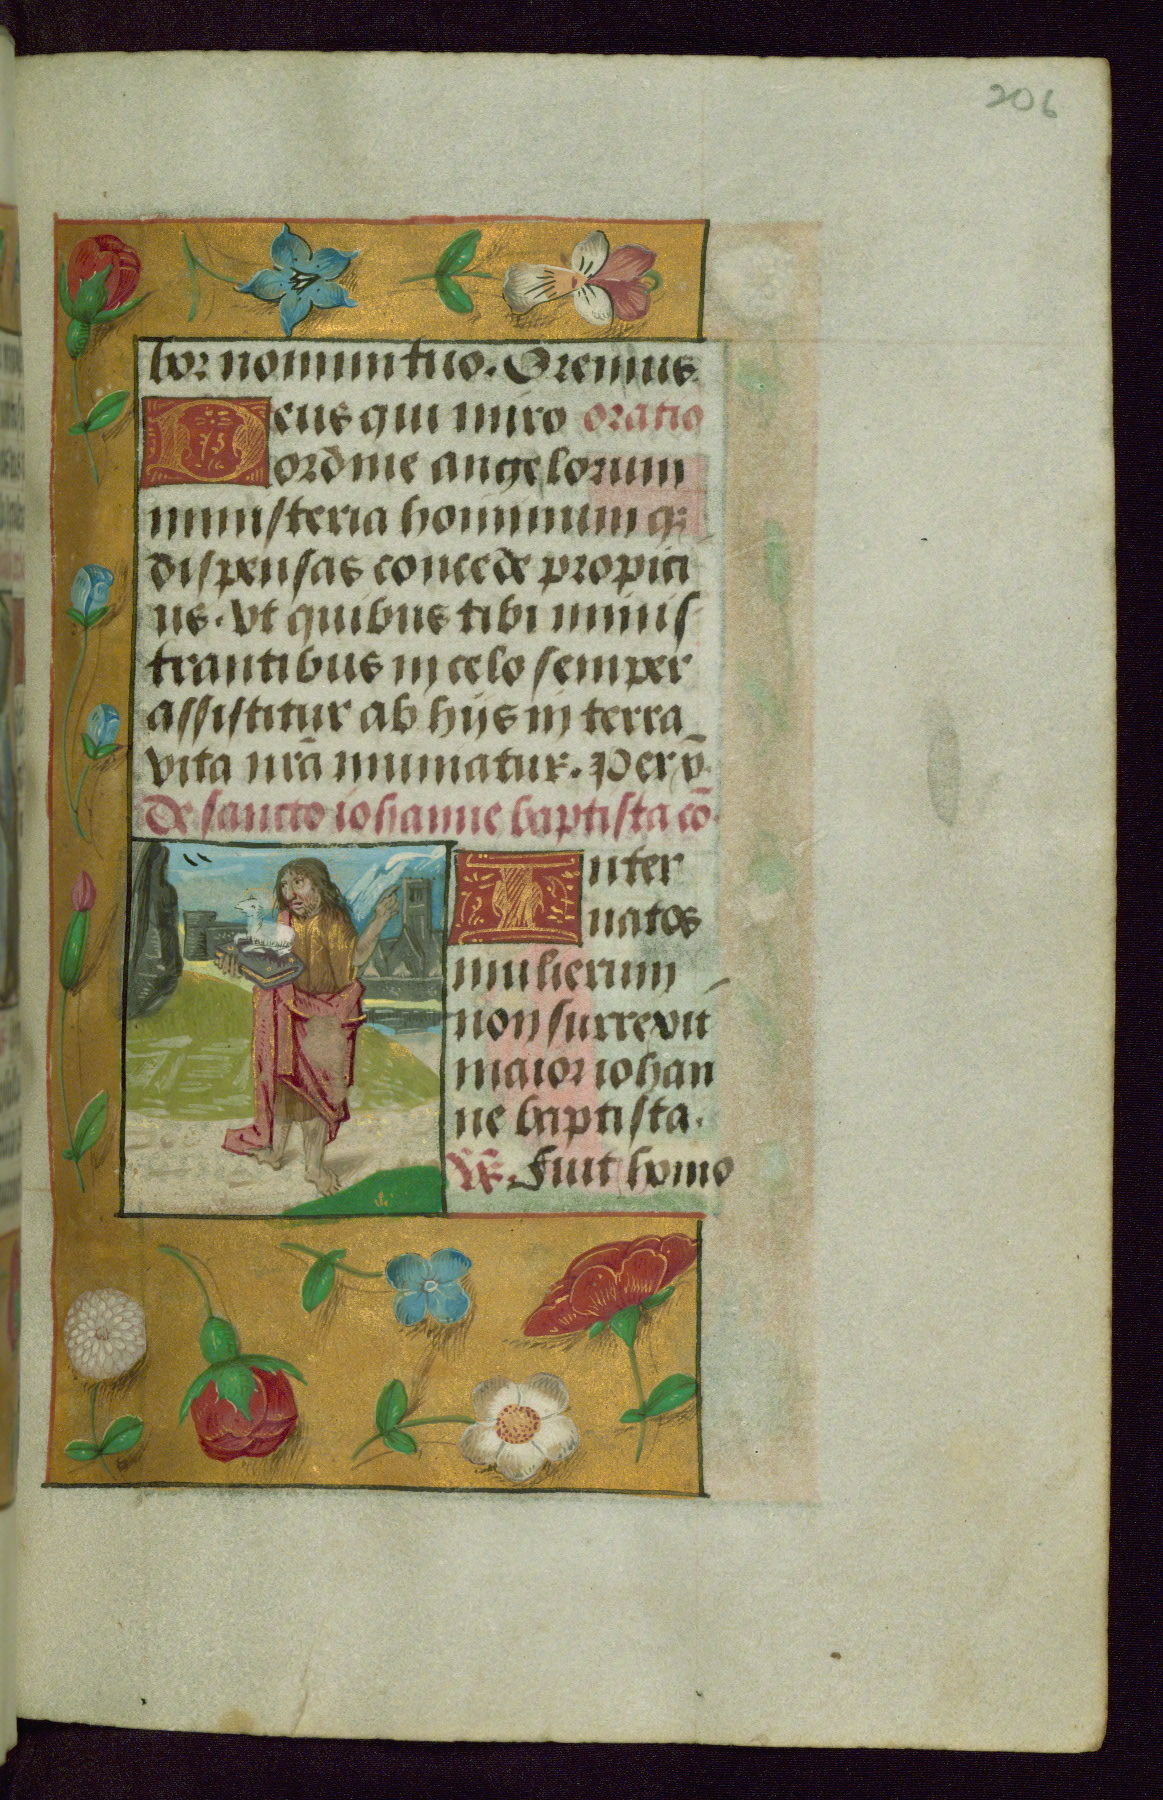 206
bor nomini tuo. Oremus
Deus qui miro oratio
ordine angelorum
ministeria hominumq;
dispensas concede propici
us. Vt quibus tibi minis
trantibus in celo semper
assistitur ab hijs in terra
vita nrã muniatur. Per x̄
De sancto iohanne baptista cō
Inter
natos
mulierum
non surrexit
maior iohan
ne baptista.
V. Fuit homo